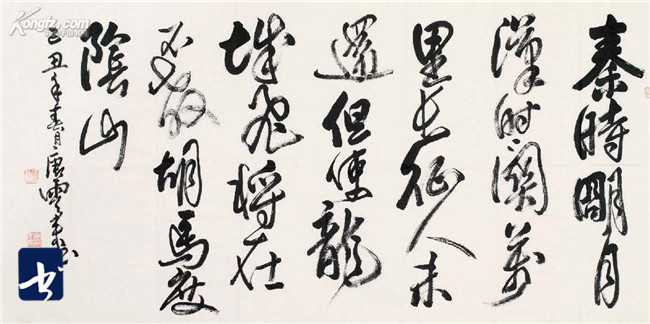 秦時明月
漢时關萬
里长征人未
還但使龍
城飛將在
不教胡馬度
陰山
己丑年春月唐雲来书
Kongfz.com
书